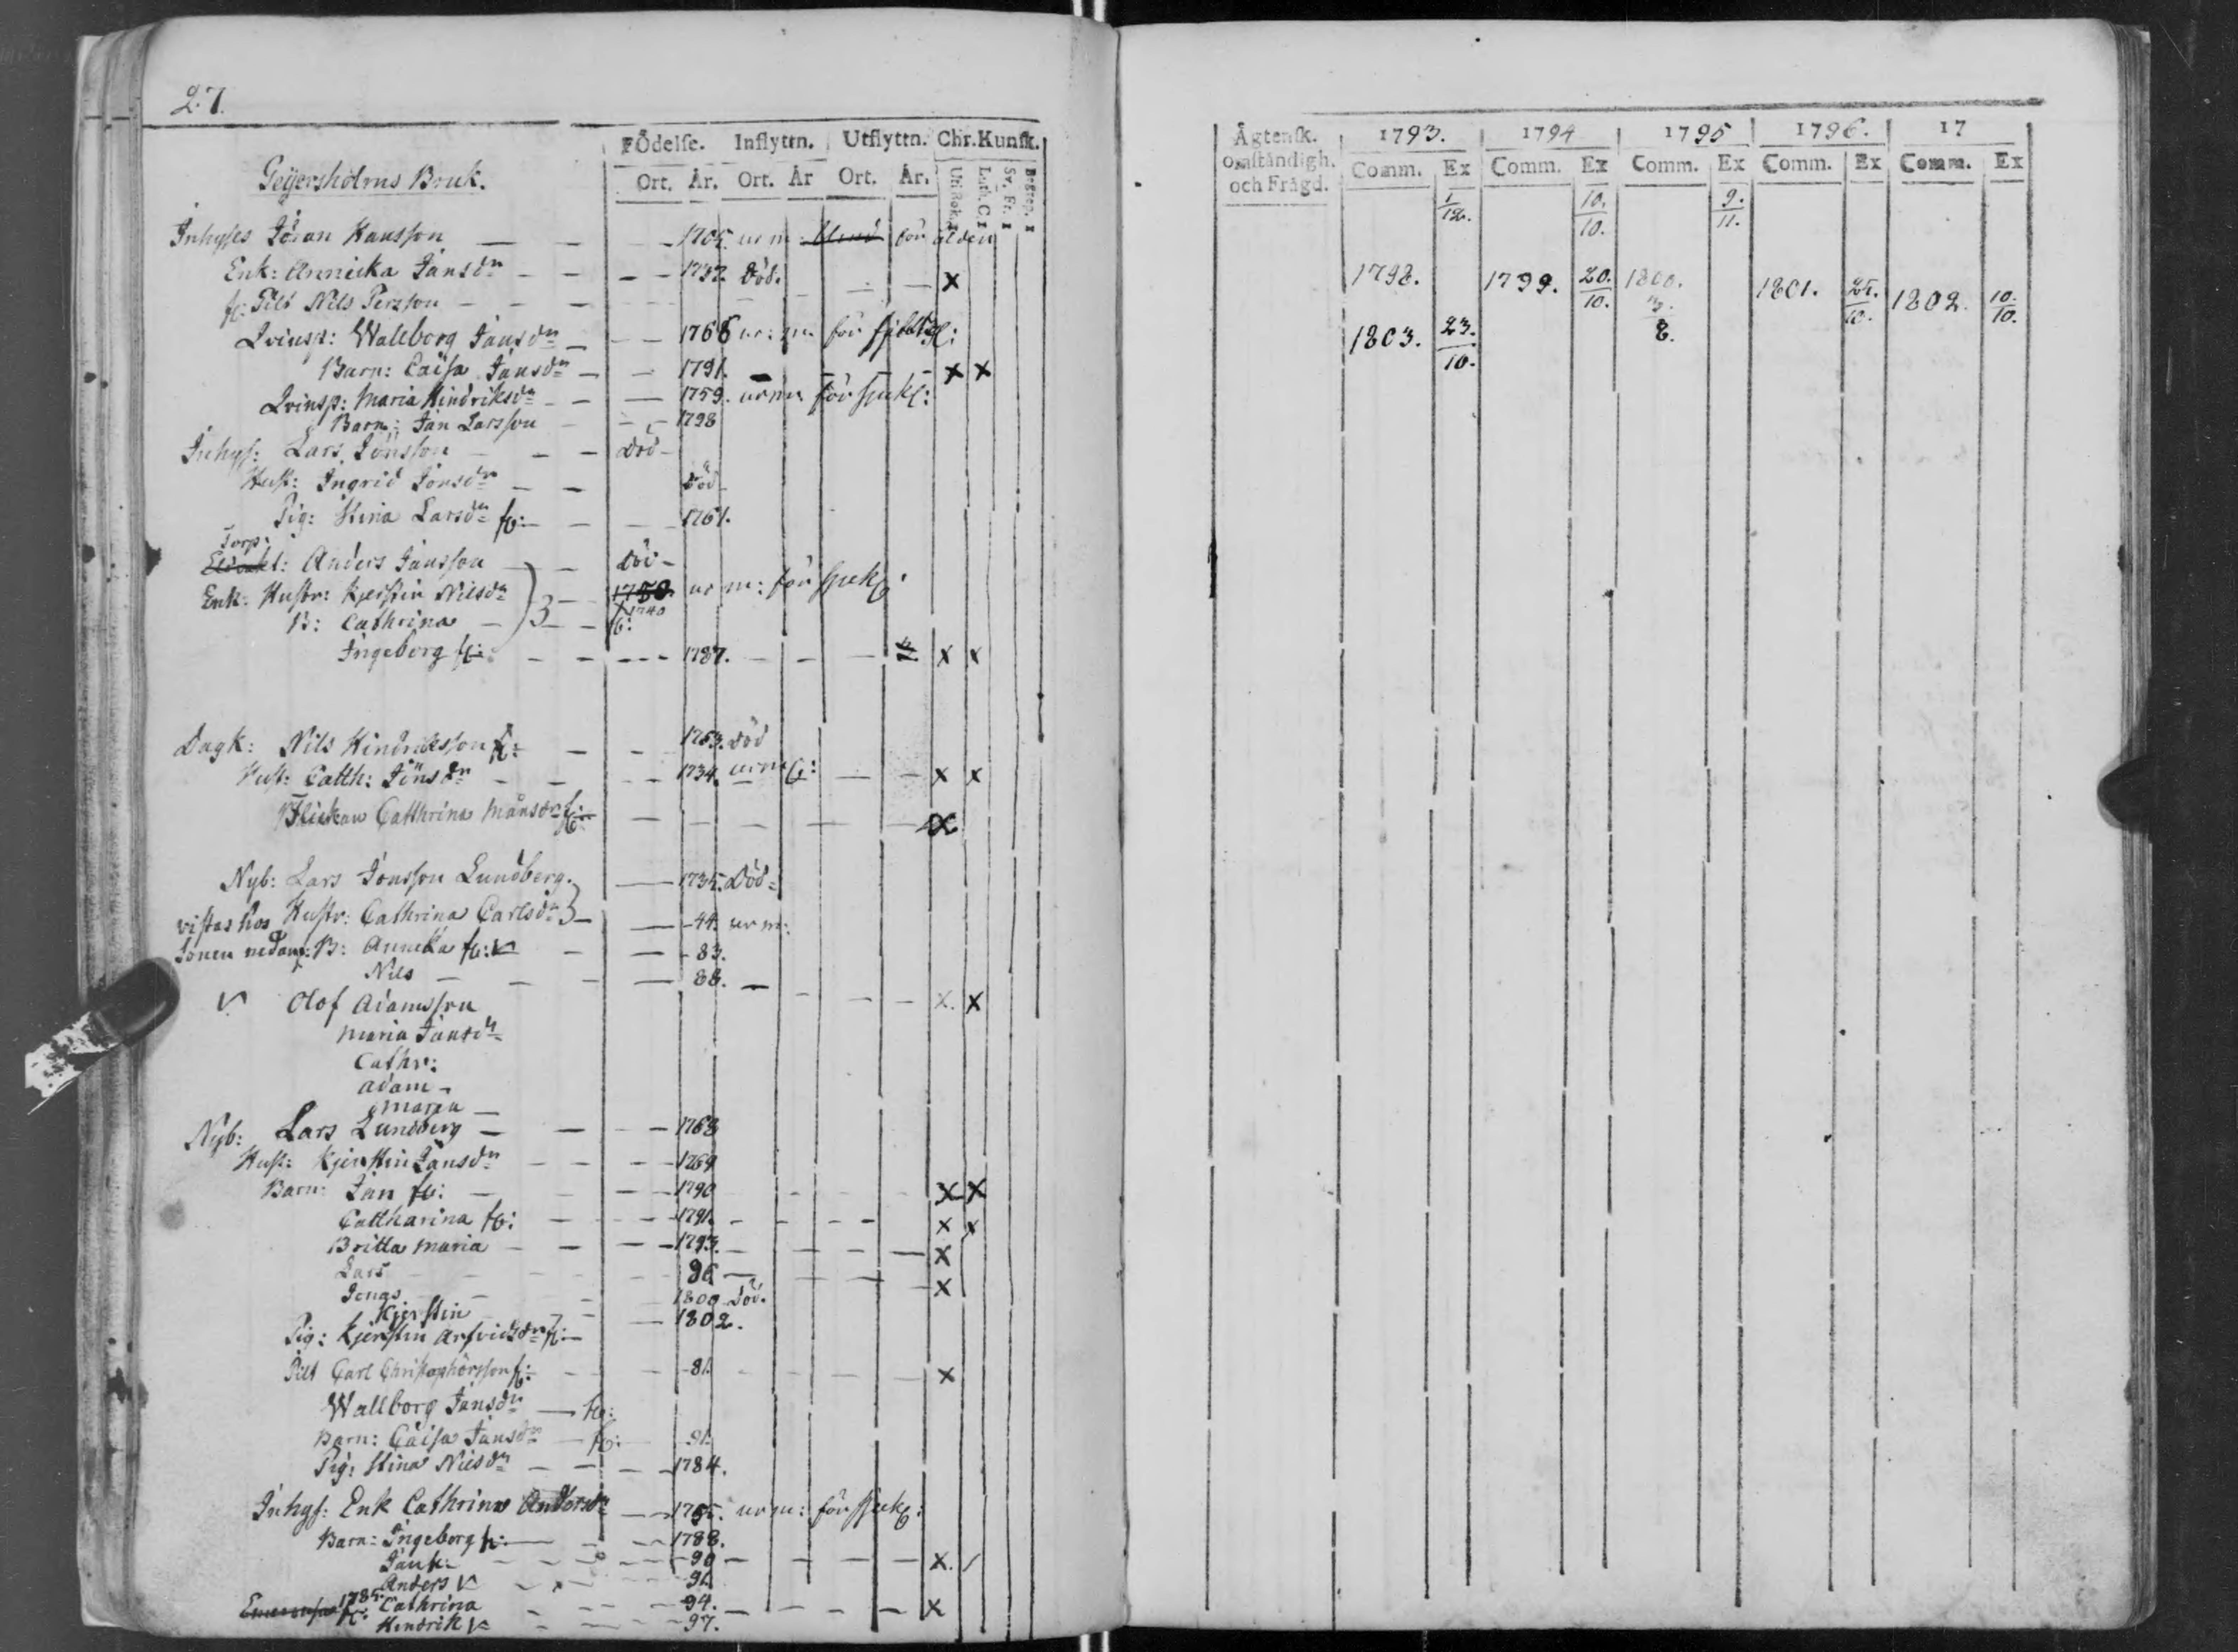 27.
FÖdelse. Inflyttn. Utflyttn. Chr.Kunsk.
Geijersholms Bruk.
Ort. År. Ort. År Ort. År.
Inhyses Jöran Hansson — — 1705. ur m: blind för ålder
Enk: Annicka Jansdr — — 1732. Död. x
fl: Pilt Nils Persson — — —
Qvinsp: Wallborg Jansdr — — 1768 ur: m:
Barn: Caisa Jansdr — — 1791. x x
Qvinsp: Maria Hindriksdr — — 1759. ur m: för sjukl:
Barn: Jan Larsson — 1798
Inhys: Lars Jönsson — — Död
Hust: Ingrid Jönsdr — — Död
Pig: Stina Larsdr fl: — — 1761.
Torp:
Anders Jansson — — Död
Enk: Hustr: Kjerstin Nilsdr — 1750. ur m: för sjukl:
1740
B: Cathrina — — fl:
Ingeborg fl: — — 1787. — — — x x
Dagk: Nils Hindriksson fl: — — 1763. Död
Hust: Catth: Jönsdr — — 1734. — — x x
Flickan Catthrina Månsdr fl: — — — — x
Nyb: Lars Jonsson Lundberg. — 1735. Död
vistas hos Hustr: Cathrina Carlsdr — — 44. ur m:
Sonen nedanf: B: Annicka fl: — — 83.
Nils — — — 88. — — — x. x
Olof Adamsson
Maria Jansdr
Cathr:
Adam
Maria —
Nyb: Lars Lundberg — — — 1763
Hust: Kjerstin Jansdr — — — 1769
Barn: Jan fl: — — — 1790 x x
Cattharina fl: — — 1791. — — — x x
Britta Maria — — — 1793. — — — x
Lars — — 96 — — — x
Jonas — — 1800 Död.
Kjerstin — — 1802.
Pig: Kjerstin Arfvidsdr fl: —
Pilt Carl Christophersson fl: — — 81. — — — x
Wallborg Jansdr — fl:
Barn: Caisa Jansdr — fl: — 91.
Pig: Stina Nilsdr — — — 1784.
Inhys: Enk Cathrina Andersdr — 1755. ur m: för sjukl:
Barn: Ingeborg fl: — — 1788.
Jan fl: — — — 90 — — — x.
Anders — — 91.
1785. Cathrina — — 94. — — — x
Hindrik — — 97.
Ägtensk. omständigh. och Frägd.
1793. 1794 1795 1796. 17
Comm. Ex Comm. Ex Comm. Ex Comm. Ex Comm. Ex
1/12. 10./10. 9./11.
1798. 1799. 20./10. 1800. 1801. 25./10. 1802. 10./10.
1803. 23./10. 8.